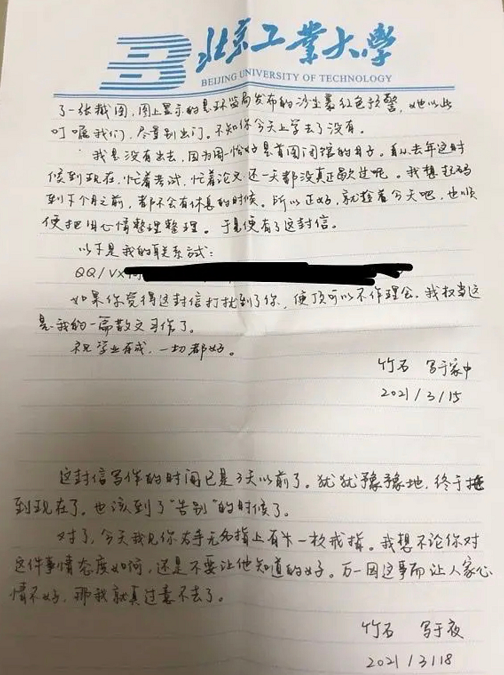 北京工业大学
BEIJING UNIVERSITY OF TECHNOLOGY
了一张截图，图上显示的是环监局发布的沙尘暴红色预警，她以此
叮嘱我们，尽量别出门。不知你今天上学去了没有。
我是没有出去，因为周一恰好是首图闭馆的日子。自从去年这时
候到现在，忙着考试，忙着论文还一天都没真正歇过吧。我想起码
到下个月之前，都不会有休息的时候。所以正好，就趁着今天吧，也顺
便把旧心情整理整理。于是便有了这封信。
以下是我的联系方式：
QQ/VX
如果你觉得这封信打扰到了你，便可以不作理会。我权当这
是我的一篇散文习作了。
祝学业有成，一切都好。
竹石 写于家中
2021/3/15
这封信写作的时间已是3天以前了。犹犹豫豫地，终于拖
到现在了。也该到了“告别”的时候了。
对了，今天我见你右手无名指上有一枚戒指。我想不论你对
这件事情态度如何，还是不要让他知道的好。万一因这事而让人家心
情不好，那我就真过意不去了。
竹石 写于夜
2021/3/18